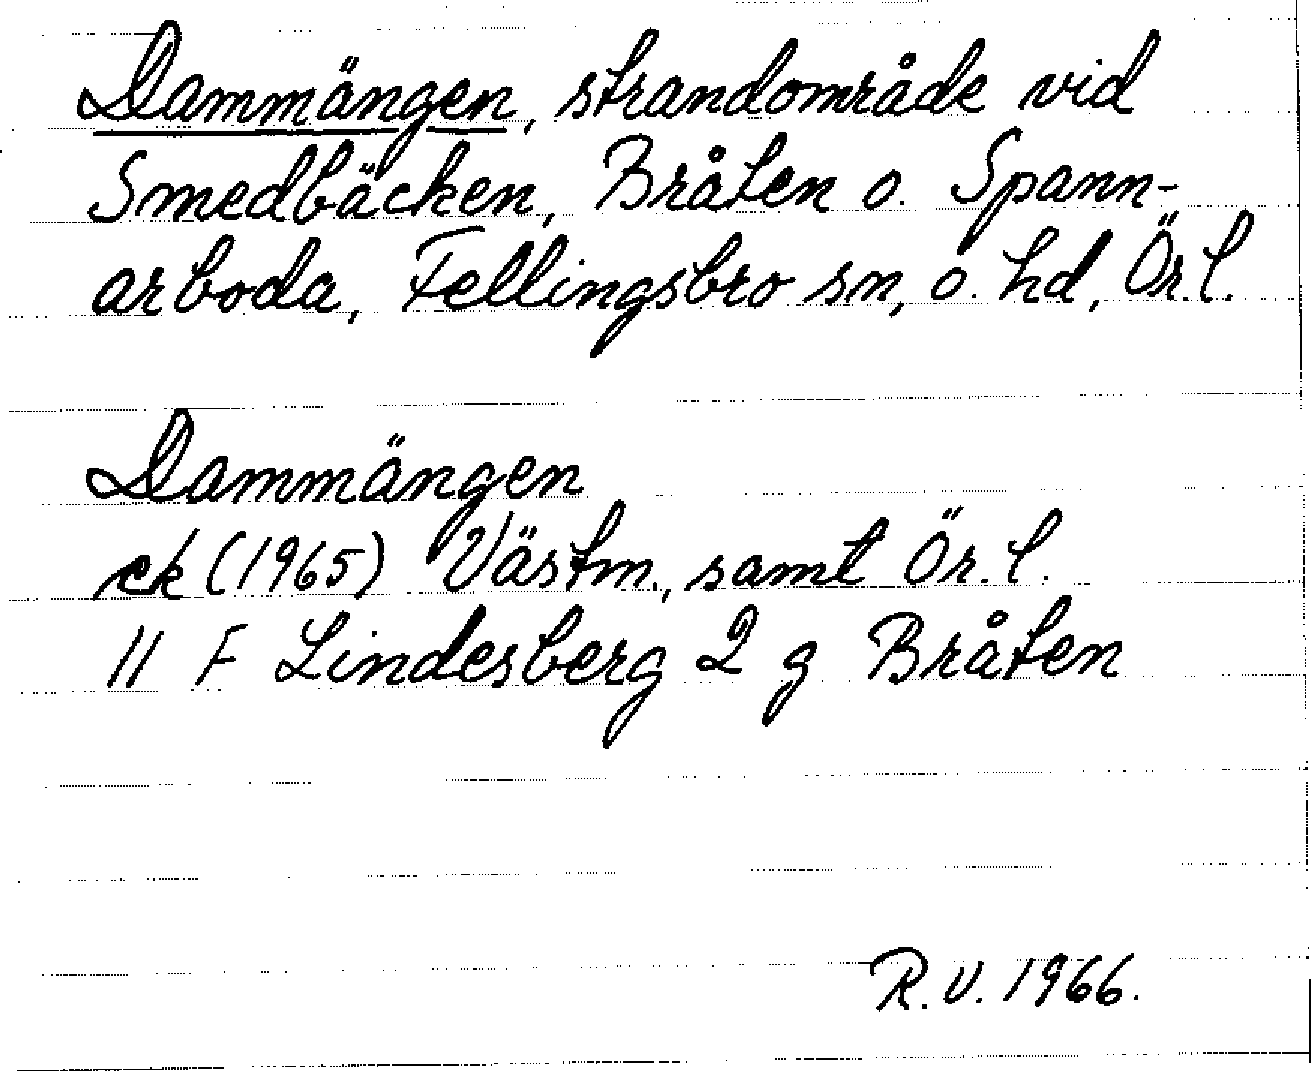 Dammängen, strandområde vid
Smedbäcken, Bråten o. Spann-
arboda, Fellingsbro sn, o. hd, Ör.l.
Dammängen
ek (1965) Västm., samt Ör.l.
11 F Lindesberg 2 g Bråten
R.V. 1966.